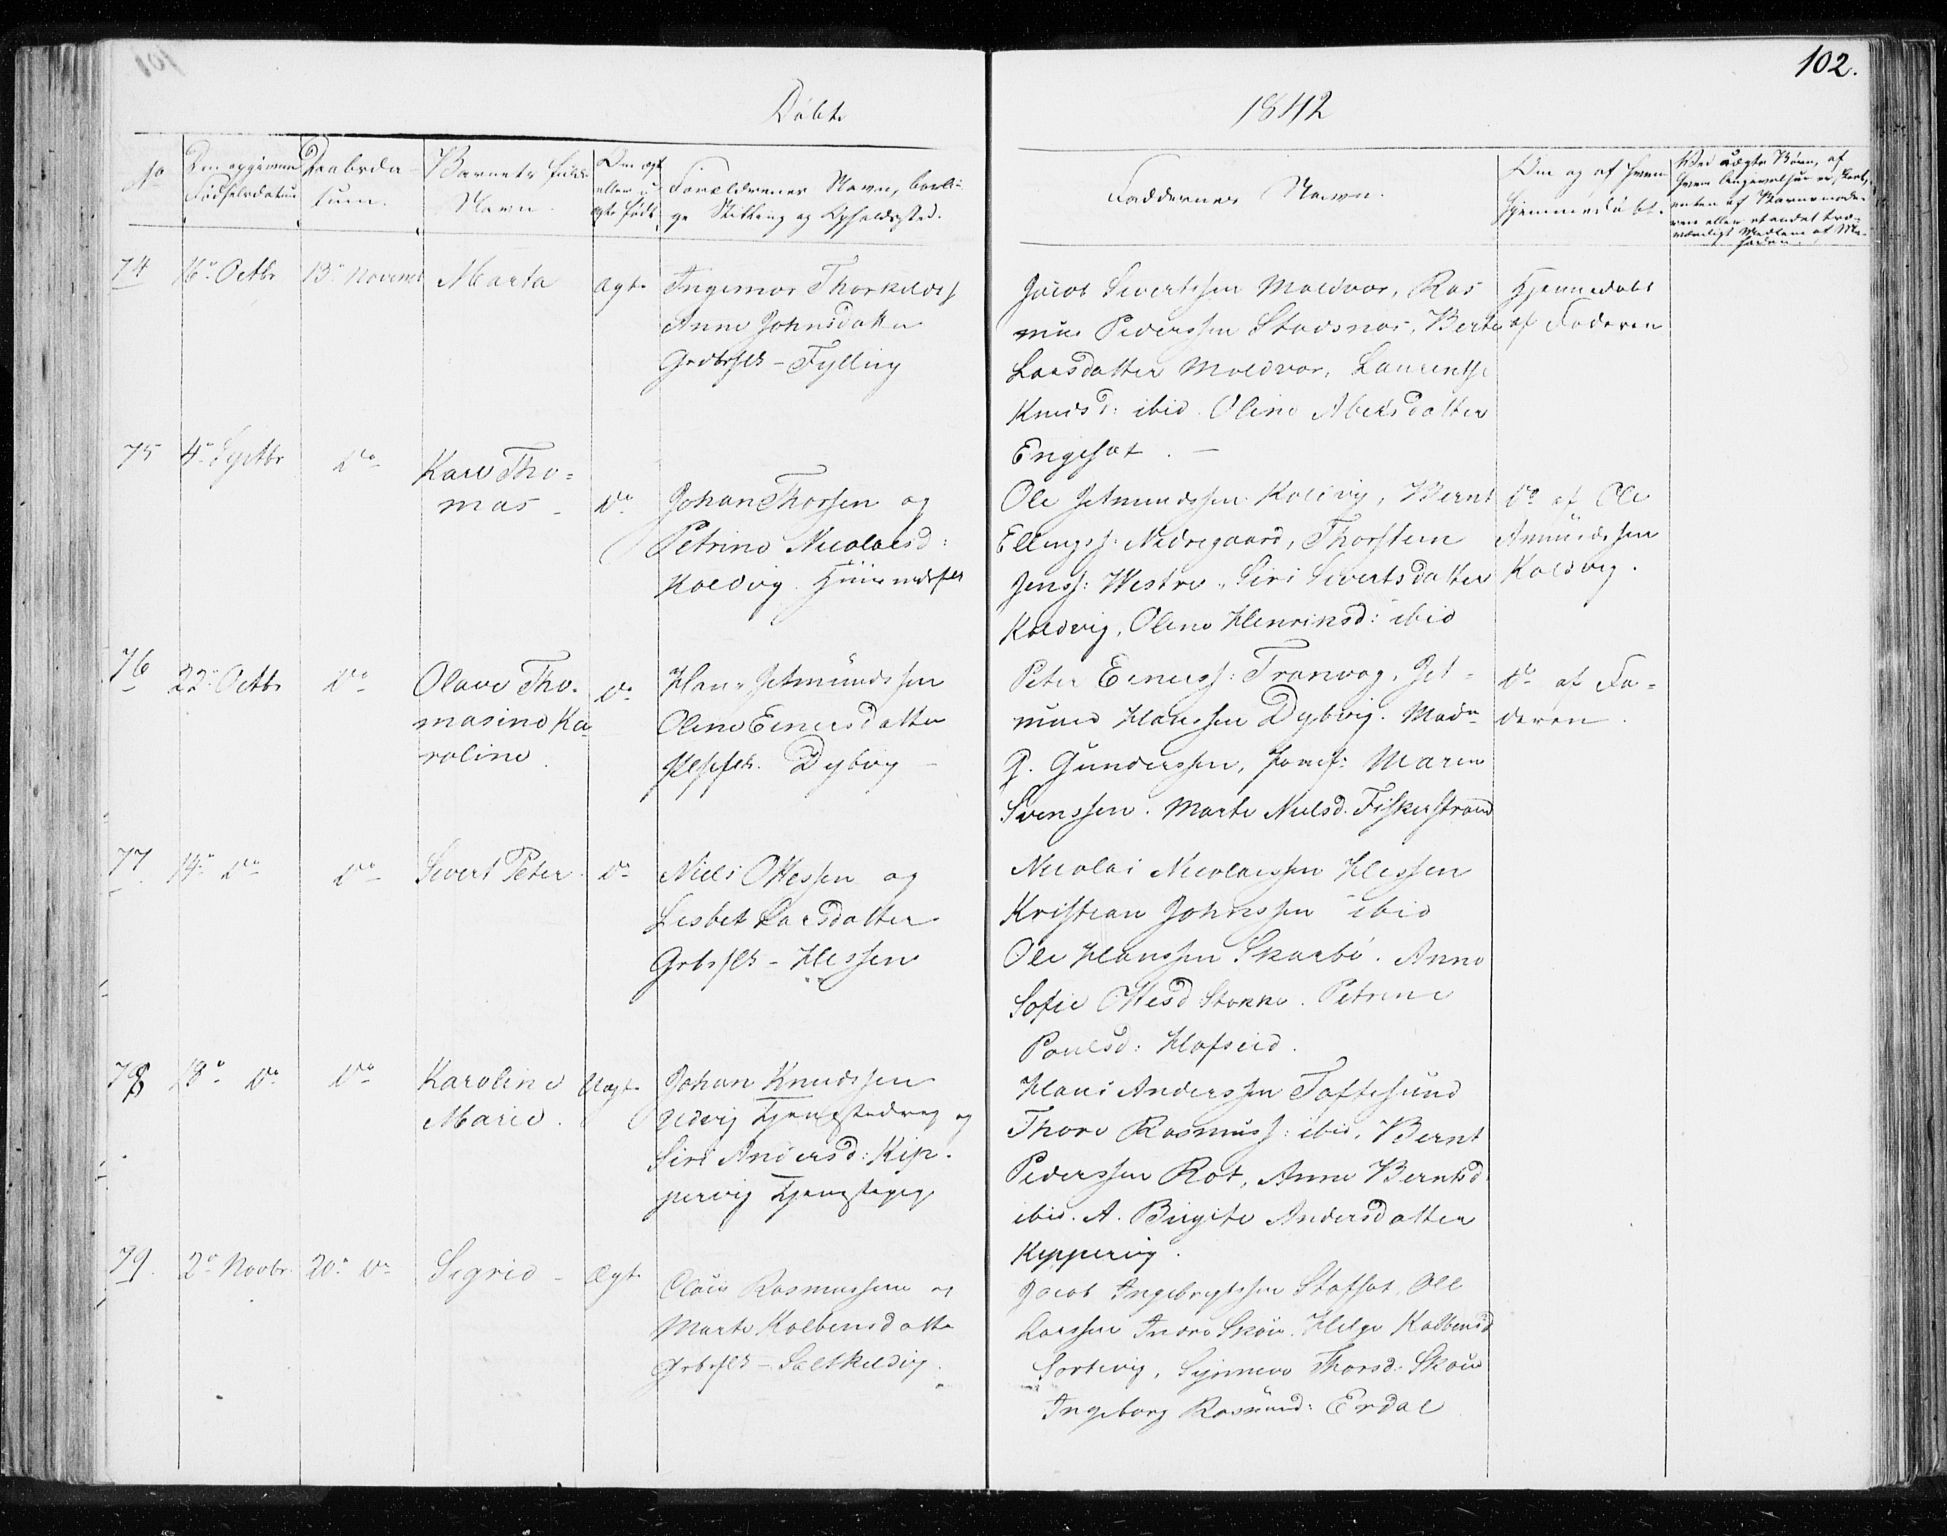 102.
Døbte
1842
No
Den opgivne Fødselsdatum
Daabsdatum.
Barnets fulde Navn.
Om ægte eller uægte født
Forældrenes Navn, borlige Stilling og Opholdssted.
Faddernes Navn.
Om og af hvem hjemmedøbt.
74
16de Octbr
13de Novemb
Marta
Ægte
Ingemor Thorkelds
Anne Johnsdatter
Grdbrflk - Fylling
Jacob Sivertssen Moldvær, Ras
mus Pederssen Stavsnæs, Berte
Larsdatter Moldvær, Laurentse
Knudsd: ibid. Oline Abelsdatter
Engeset. -
Hjemmedøbt
af Faderen
75
4de Septbr
do
Karl Tho=
mas -
do
Johan Thorsen og
Petrine Nicolaisd:
Koldvig. Huusmdsflk
Ole Jetmundssen Koldvig, Bernt
Ellingss: Nedregaard, Thorstein
Jenss: Westre, Siri Sivertsdatter
Koldvig, Oline Henriksd: ibid
do af Ole
Amundssen
Koldvig.
76
22de Octbr
do
Olave Tho.
masine Ka
roline.
do
Hans Jetmundssen
Oline Einersdatter
Plssflk. Dybvig -
Peter Einerss: Tranvog, Jet=
mund Hanssen Dybvig. Made
G. Gunderssen, Jomf: Maren
Svenssen. Marte Nielsd. Fiskerstrand
do af Fa=
deren.
77
14de do
do
Sivert Peter
do
Niels Ottessen og
Lisbet Larsdatter
Grbrflk - Hessen
Nicolai Nicolaissen Hessen
Kristian Johnssen ibid
Ole Hanssen Skarbø. Anne
Sofie Ottesd Stokke. Petrine
Poulsd: Hofseid.
78
18de do
do
Karoline
Marie.
Uægte
Johan Knudssen
Vedvig Tjenestedreng og
Siri Andersd: Kip.
pervig Tjenestepige
Hans Anderssen Toftesund
Thore Rasmuss: ibid, Bernt
Pederssen Rot, Anne Berntsd.
ibid. A. Birgite Andersdatter
Kippervig.
79.
2de Novbr
20de do
Sigrid -
Ægte
Claus Rasmussen og
Marte Kolbensdatter
Grbrflk - Saltkeldvig.
Jacob Ingebrigtssen Stafset, Ole
Larssen Indre Skoue. Helge Kolbensd
Sortevig, Synneve Thorsd: Skoue
Ingeborg Rasmusd: Erdal